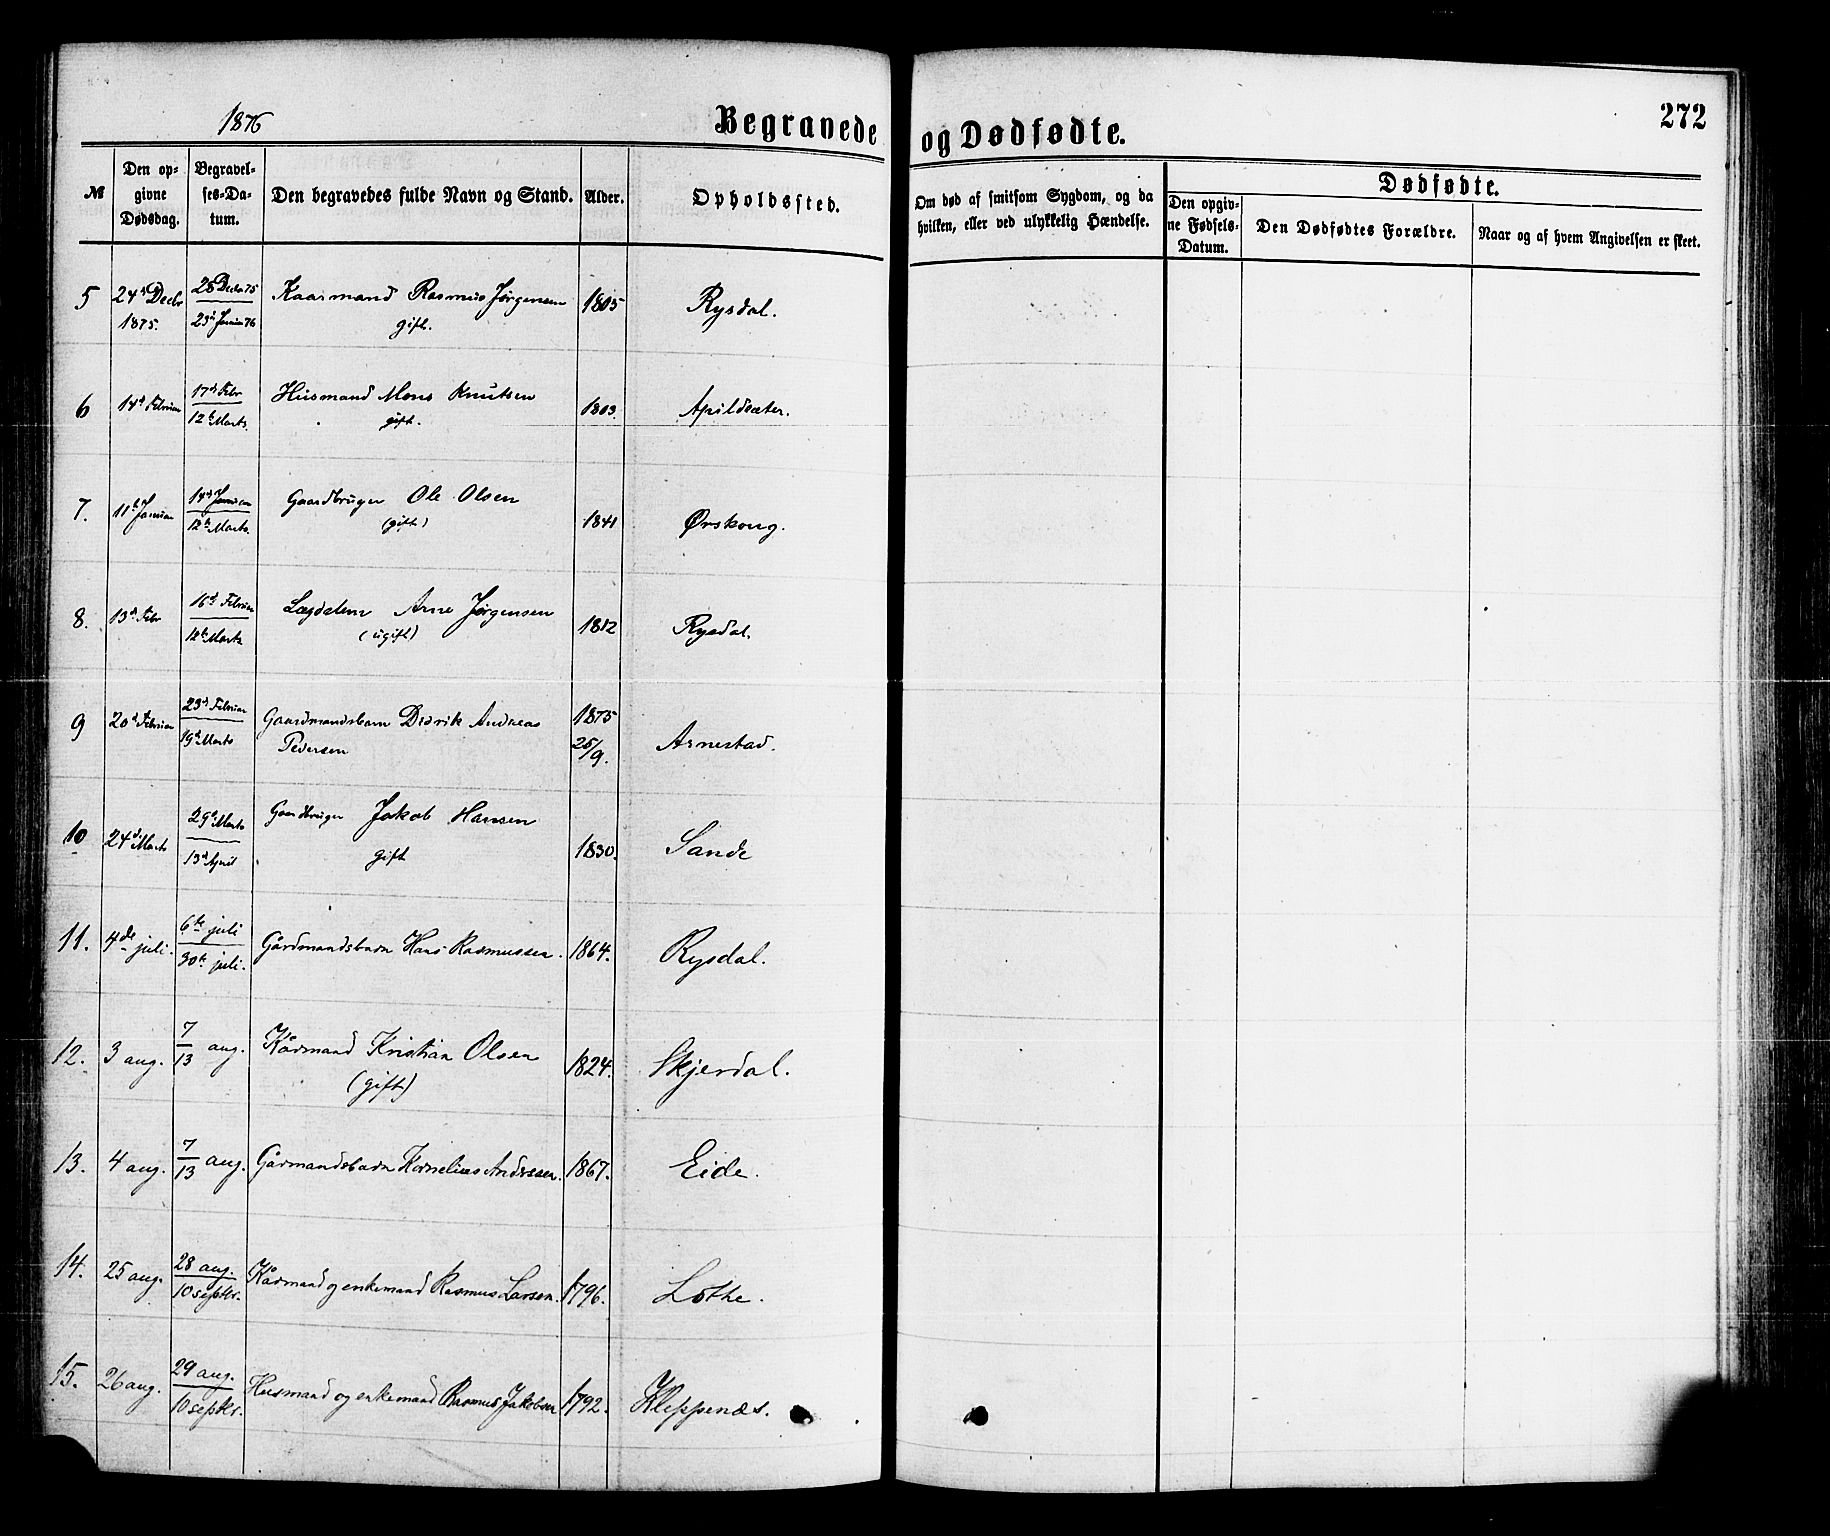 1876
Begravede og Dødfødte.
272
№
Den opgivne Dødsdag.
Begravelses-Datum.
Den begravedes fulde Navn og Stand.
Alder.
Opholdssted.
Om død af smitsom Sygdom, og da hvilken, eller ved ulykkelig Hændelse.
Dødfødte.
Den opgivne Fødsels-Datum.
Den Dødfødtes Forældre.
Naar og af hvem Angivelsen er skeet.
5 24d Decbr 1875. 28 Decbr 75 23d Januar 76 Kaarmand Rasmus Jørgensen gift. 1805 Rysdal.
6 14d Februar 17d Febr 12te Marts. Husmand Mons Knutsen gift. 1803 Apildsæter.
7. 11te Januar 14d Januar 12te Marts. Gaardbruger Ole Olsen (gift) 1841 Ørskoug.
8. 13d Febr 16d Februar 12te Marts Lægdslem Arne Jørgensen (ugift) 1812 Rysdal.
9 20d Februar 23d Februar 19d Marts Gaardmandsbarn Didrik Andreas Pedersen 1875 25/9. Arnestad.
10 24d Marts 29d Marts 13d April Gaardbruger Jakob Hansen gift 1830. Sande
11. 4de juli. 6te juli 30te juli. Gårdmandsbarn Hans Rasmussen. 1864. Rysdal.
12. 3 aug. 7/13 aug. Kårmand Kristian Olsen (gift) 1824. Skjerdal.
13. 4 aug. 7/13 aug. Gårmandsbarn Kornelius Anderssen. 1867. Eide.
14. 25 aug. 28 aug. 10 septbr. Kårmand og enkemand Rasmus Larsen. 1796. Lothe.
15. 26 aug. 29 aug. 10 septbr. Husmand og enkemand Rasmus Jakobsen 1792. Kleppenæs.